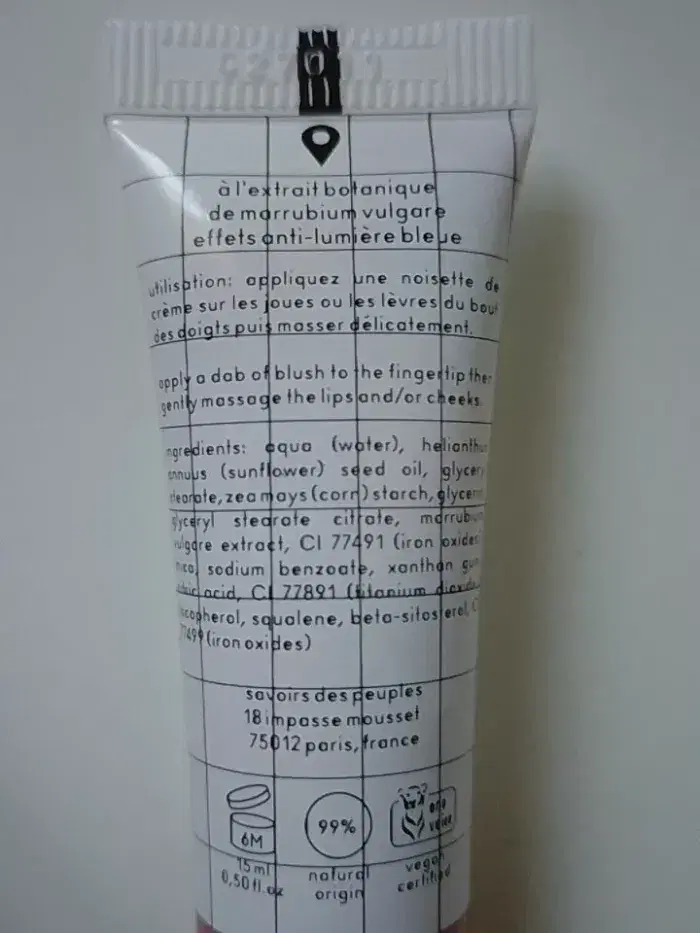 à l'extrait botanique
de marrubium vulgare
effets anti-lumière bleue
utilisation: appliquez une noisette de
crème sur les joues ou les lèvres du bout
des doigts puis masser délicatement.
apply a dab of blush to the fingertip then
gently massage the lips and/or cheeks.
ingredients: aqua (water), helianthus
annuus (sunflower) seed oil, glyceryl
stearate, zea mays (corn) starch, glycerin,
glyceryl stearate citrate, marrubium
vulgare extract, CI 77491 (iron oxides),
mica, sodium benzoate, xanthan gum,
acid, CI 77891 (titanium dioxide),
tocopherol, squalene, beta-sitosterol, CI
77499 (iron oxides)
savoirs des peuples
18 impasse mousset
75012 paris, france
6M
99%
one
voice
15 ml
0,50 fl.oz
natural
origin
vegan
certified